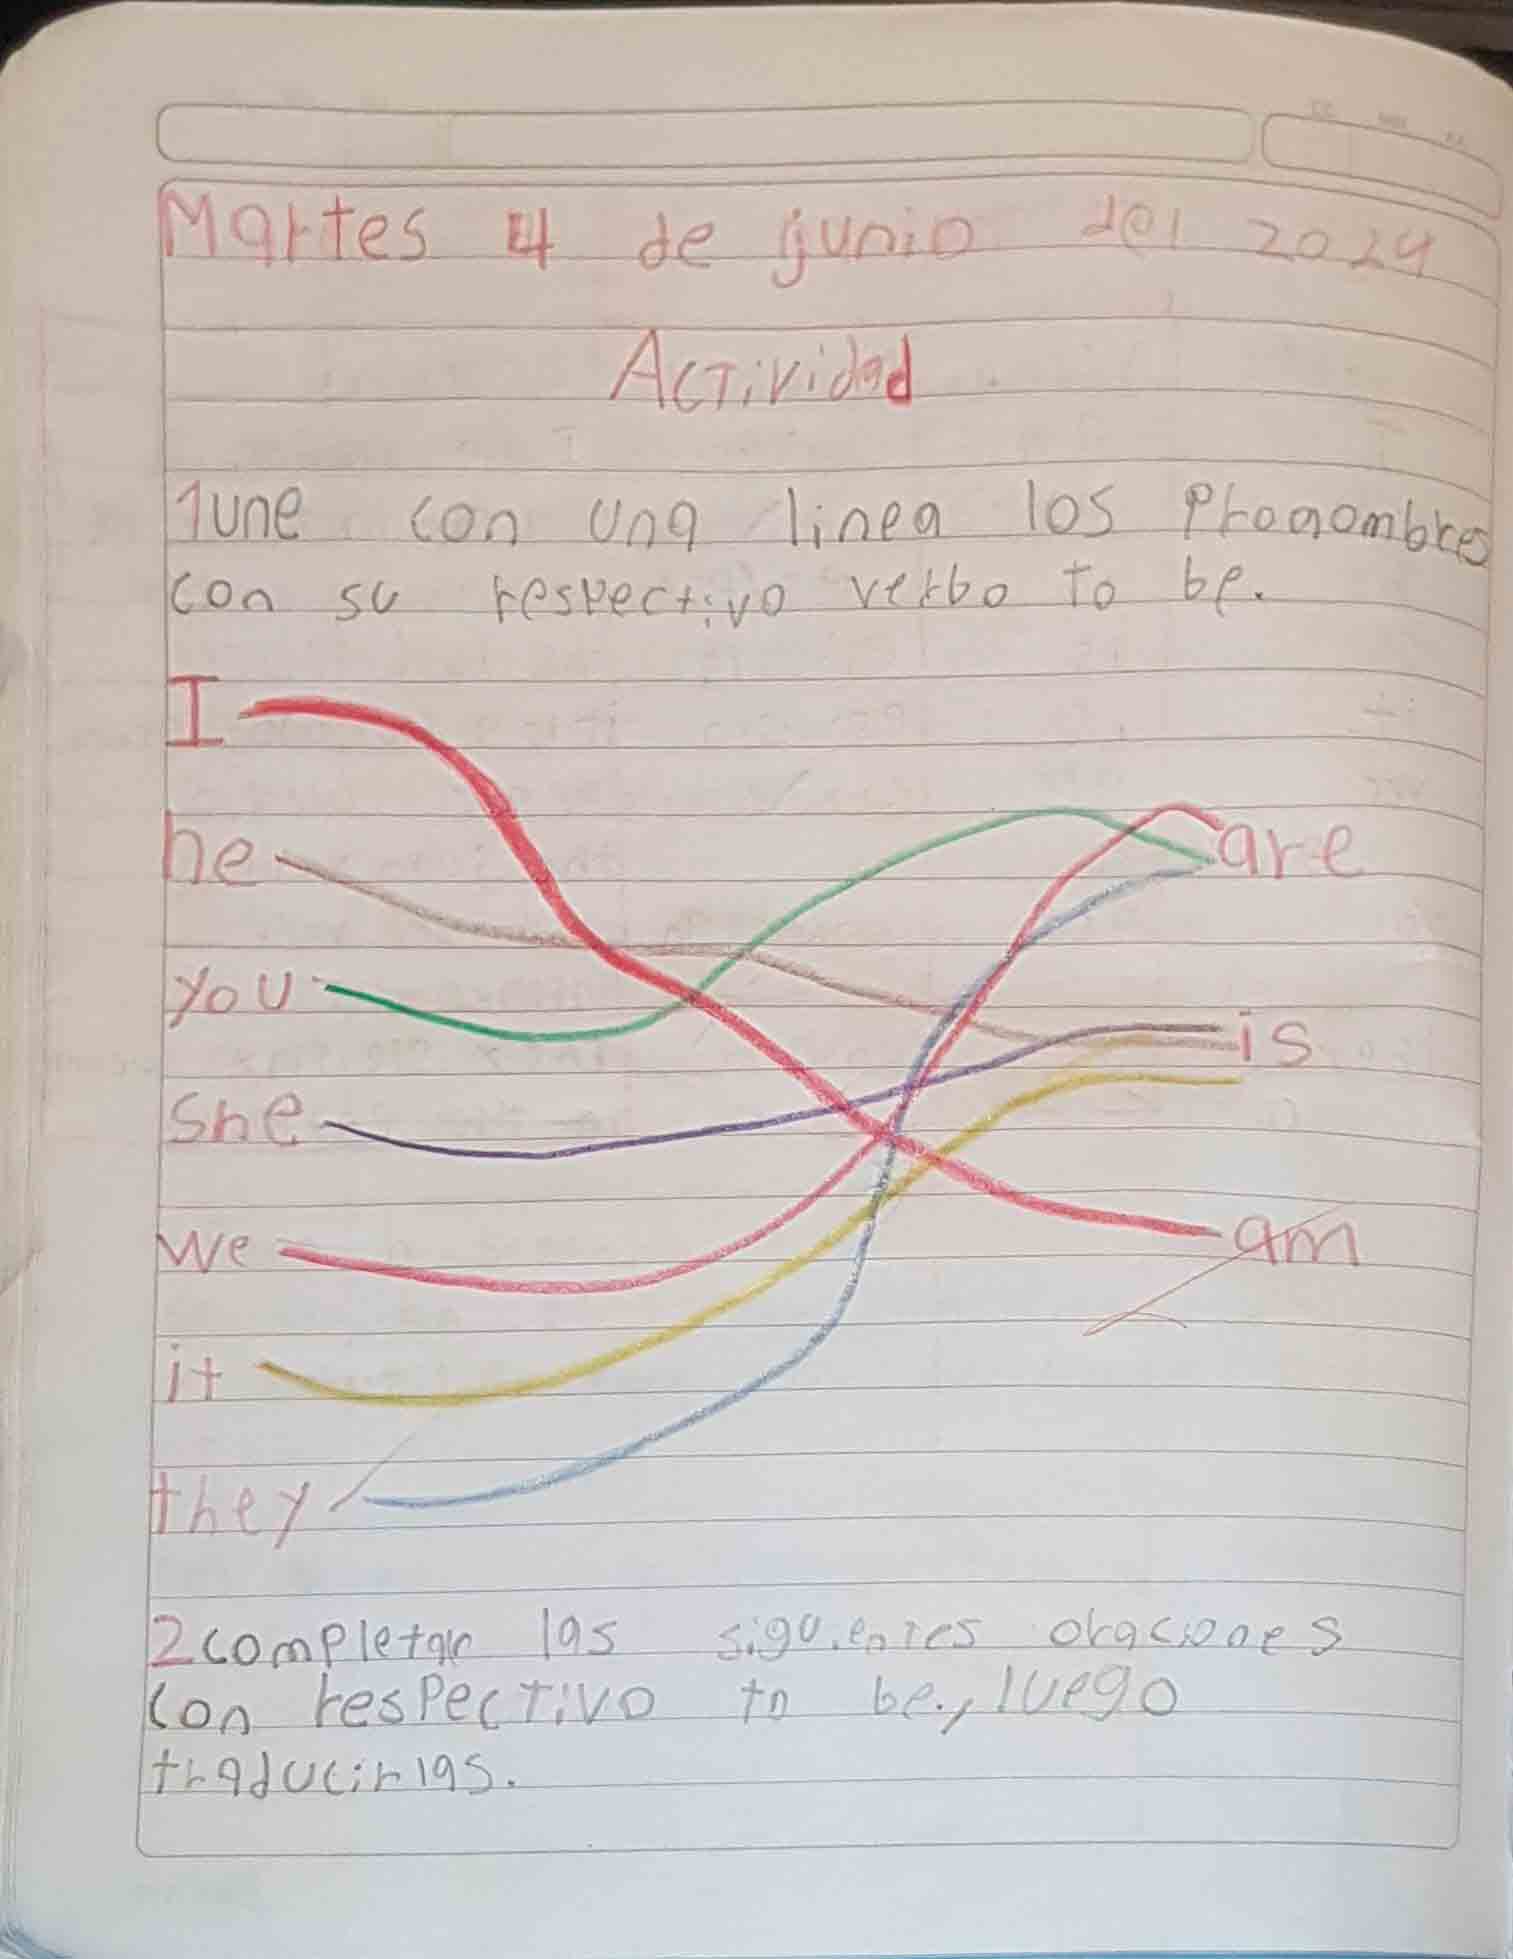 Martes 4 de junio del 2024
Actividad
1une con una linea los Pronombres
con su respectivo verbo to be.
I
he
are
you
is
she
we
am
it
they
2completar las siguientes oraciones
con respectivo to be., luego
traducirlas.